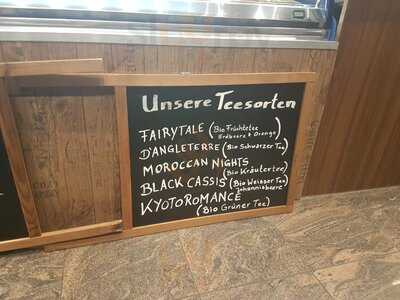 Unsere Teesorten
FAIRYTALE (Bio Früchtetee
Erdbeere & Orange)
D'ANGLETERRE (Bio Schwarzer Tee)
MOROCCAN NIGHTS
(Bio Kräutertee)
BLACK CASSIS (Bio Weisser Tee
Johannisbeere)
KYOTOROMANCE
(Bio Grüner Tee)